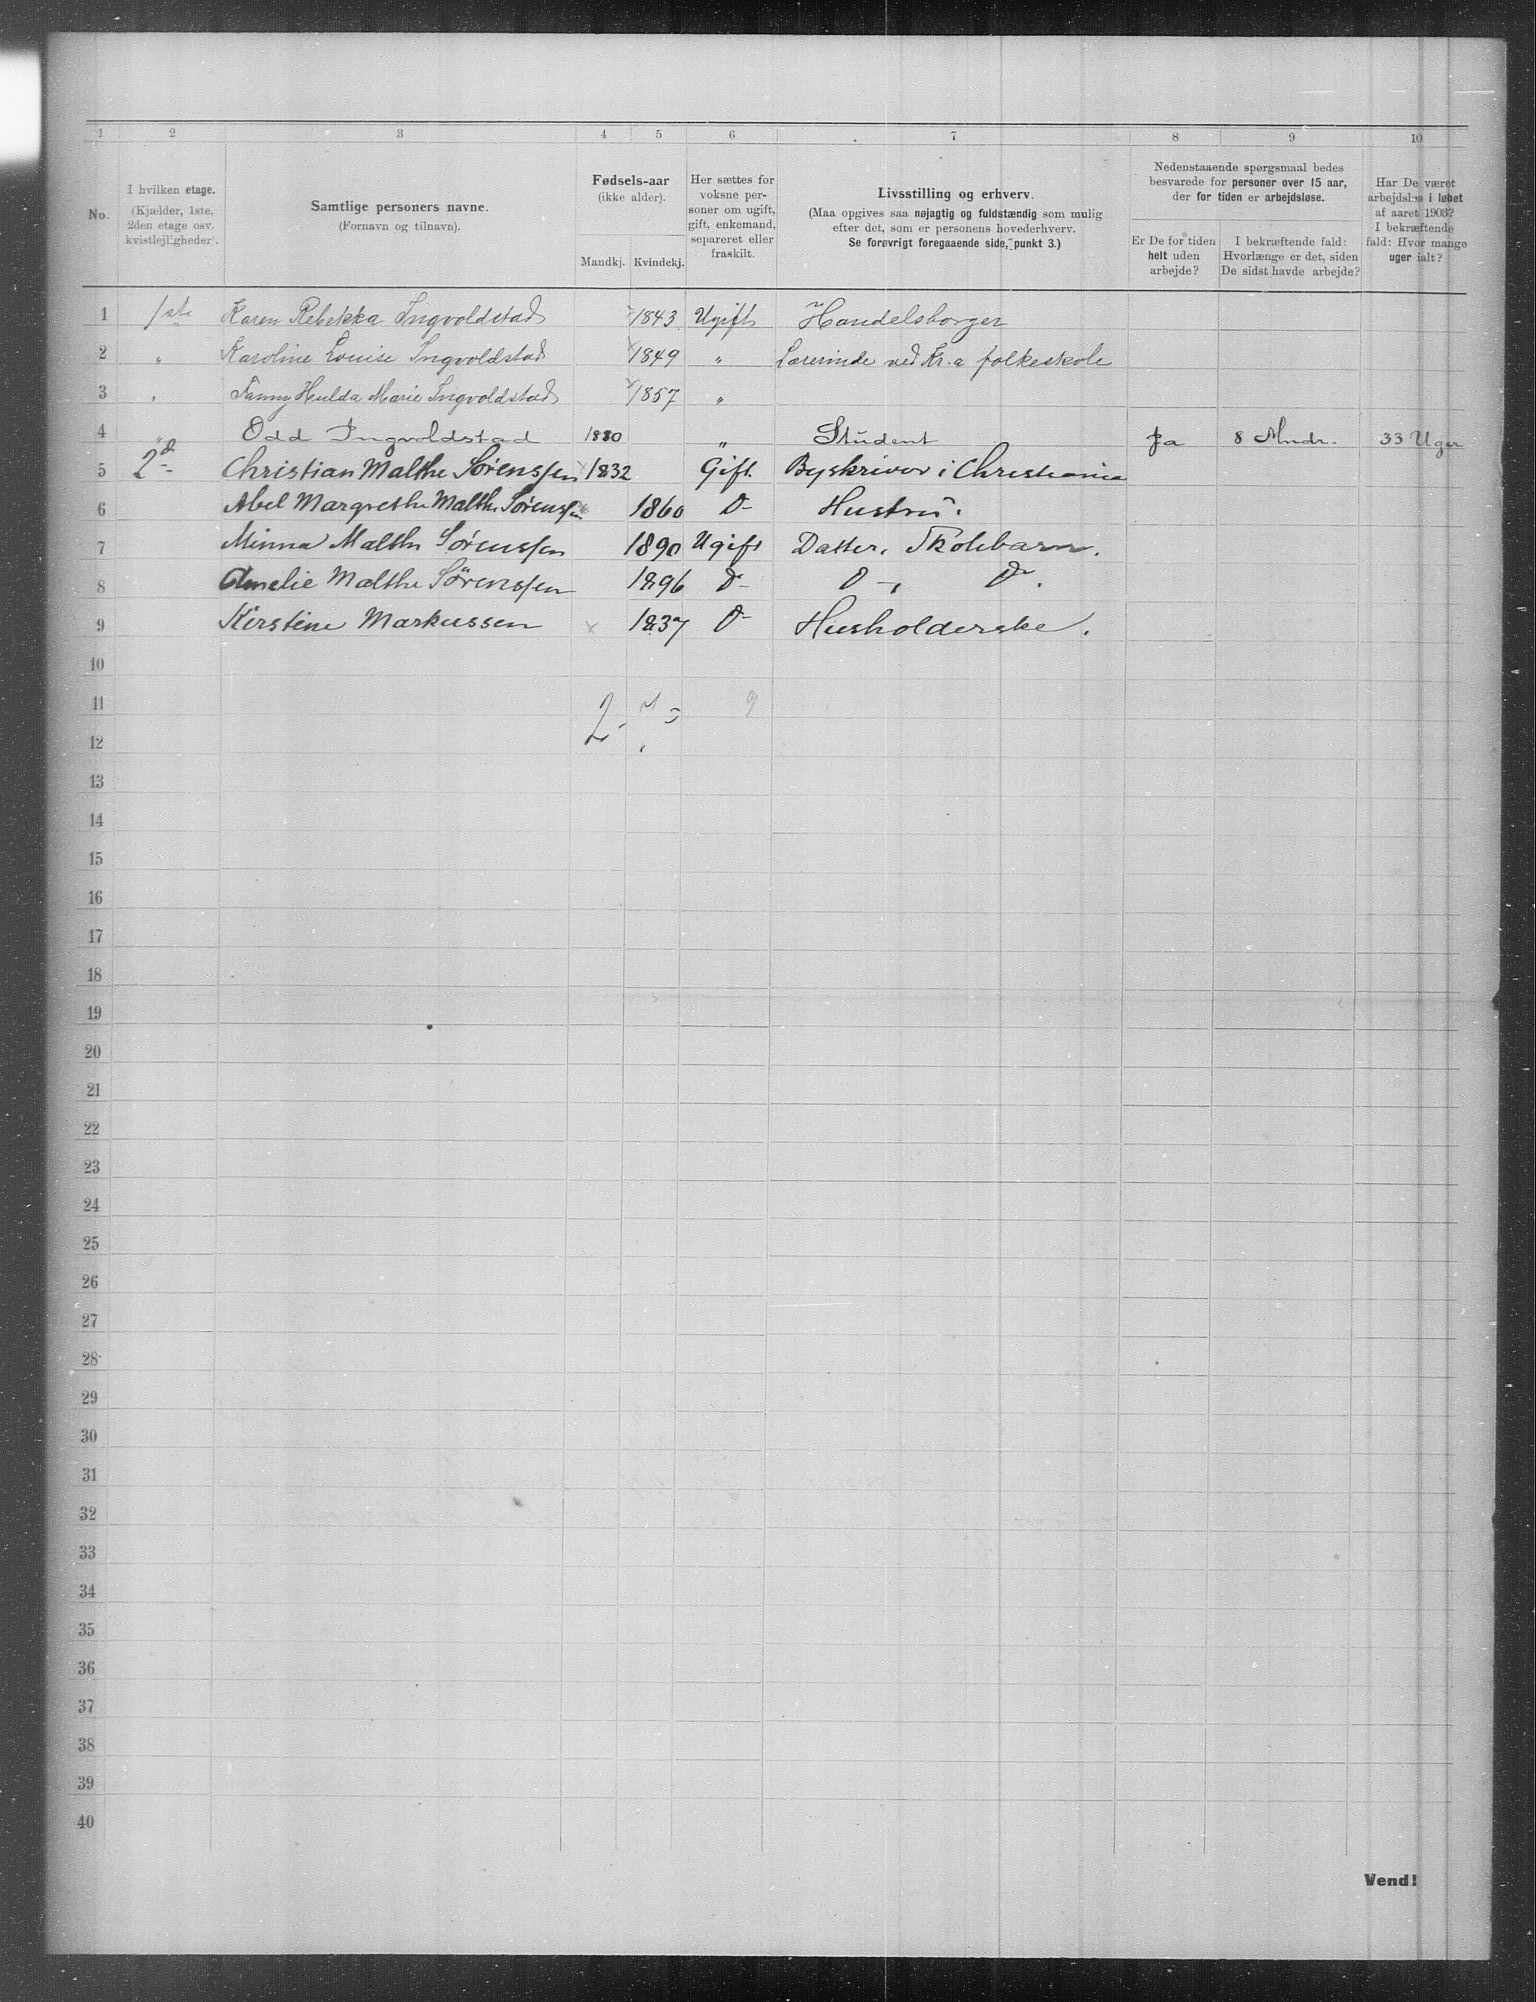 1 2 3 4 5 6 7 8 9 10
No.
I hvilken etage.
(Kjælder, 1ste,
2den etage osv.
kvistlejligheder).
Samtlige personers navne.
(Fornavn og tilnavn).
Fødsels-aar
(ikke alder).
Mandkj. Kvindekj.
Her sættes for
voksne per-
soner om ugift,
gift, enkemand,
separeret eller
fraskilt.
Livsstilling og erhverv.
(Maa opgives saa nøjagtig og fuldstændig som mulig
efter det, som er personens hovederhverv.
Se forøvrigt foregaaende side, punkt 3.)
Nedenstaaende spørgsmaal bedes
besvarede for personer over 15 aar,
der for tiden er arbejdsløse.
Er De for tiden
helt uden
arbejde?
I bekræftende fald:
Hvorlænge er det, siden
De sidst havde arbejde?
Har De været
arbejdsløs i løbet
af aaret 1903?
I bekræftende
fald: Hvor mange
uger ialt?
1 1ste Karen Rebekka Ingvoldstad 1843 Ugift Handelsborger
2 " Karoline Louise Ingvoldstad 1849 " Lærerinde ved Kr.a folkeskole
3 " Fanny Hulda Marie Ingvoldstad 1857 "
4 " Odd Ingvoldstad 1880 " Student Ja 8 Mndr. 33 Uger
5 2d. Christian Malthe Sørenssen 1832 Gift Byskriver i Christiania
6 Abel Margrethe Malthe Sørenssen 1860 D- Hustru.
7 Minna Malthe Sørenssen 1890 Ugift Datter, Skolebarn.
8 Amelie Malthe Sørenssen 1896 D- D-, Do.
9 Kirstine Markussen 1837 D- Husholderske.
10
11
2 - 7 9
12
13
14
15
16
17
18
19
20
21
22
23
24
25
26
27
28
29
30
31
32
33
34
35
36
37
38
39
40
Vend!